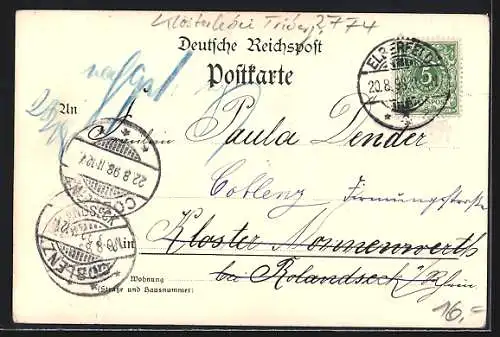 2774
Deutsche Reichspost
Postkarte
nachges.
An
Fräulein Paula Dender
Coblenz Firmungstraße
in Kloster Nonnenwerth
bei Rolandseck a/Rhein
Wohnung
(Straße und Hausnummer)
ELBERFELD
20.8.98
5
22.8.98.11-12V.
COBLENZ
COBLENZ
16,=